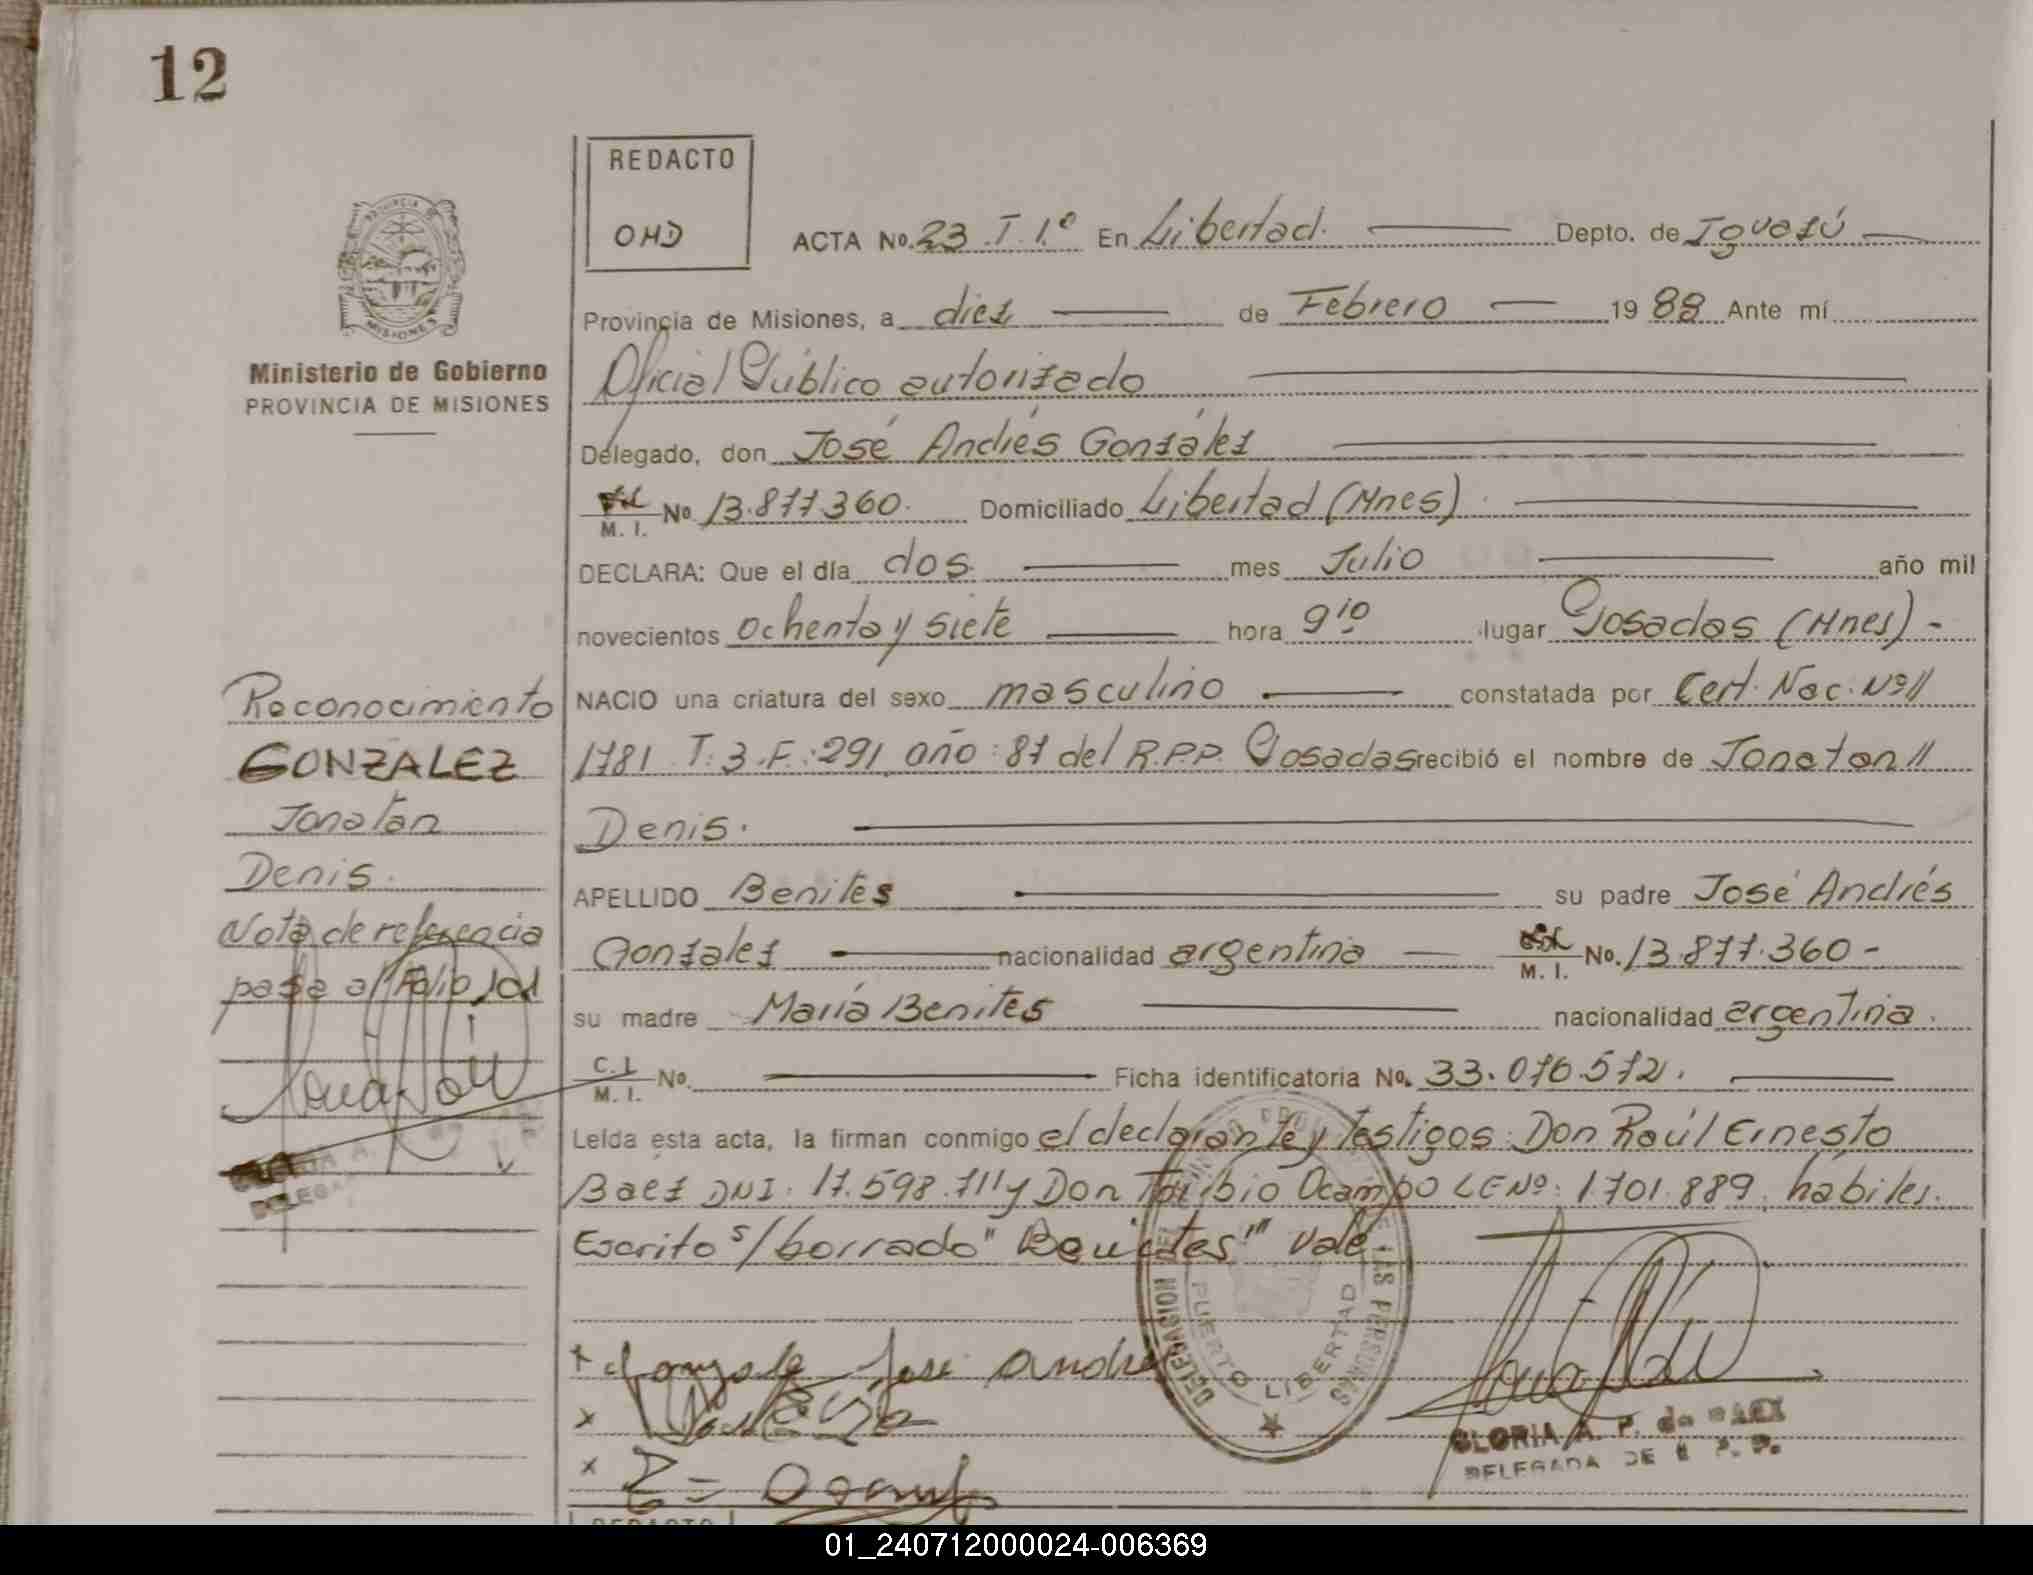 12
REDACTO
OHD
ACTA No. 23 T. 1.º En Libertad. Depto. de Iguazú
Provincia de Misiones, a diez de Febrero 1988 Ante mí
PROVINCIA DE
MISIONES
Ministerio de Gobierno
PROVINCIA DE MISIONES
Oficial Público autorizado
Delegado, don José Andrés González
M. I. No 13.877.360. Domiciliado Libertad (Mnes)
DECLARA: Que el día dos mes Julio año mil
novecientos ochenta y siete hora 9 10 lugar Posadas (Mnes) -
NACIO una criatura del sexo masculino constatada por Cert. Nac. Nº//
1781 T: 3 F: 291 año: 87 del R.P.P. Posadas recibió el nombre de Jonatan //
Denis.
APELLIDO Benites su padre José Andrés
Gonzalez nacionalidad argentina M. I. No. 13.877.360 -
su madre María Benites nacionalidad argentina.
C. I. M. I. No. Ficha identificatoria No. 33.076.572.
Leída esta acta, la firman conmigo el declarante y testigos: Don Raúl Ernesto
Baez DNI. 17.598.711 y Don Toribio Ocampo LE Nº: 1701.889. hábiles.
Escrito s/ borrado "Benites" Vale.
Reconocimiento
GONZALEZ
Jonatan
Denis.
Nota de referencia
pasa al Folio 101
DELEGACION DEL
DE LAS PERSONAS
PUERTO LIBERTAD
+ Gonzale Jose Andre
x
x
GLORIA A. P. de BAEZ
DELEGADA DE R. P. P.
REDACTO
01_240712000024-006369